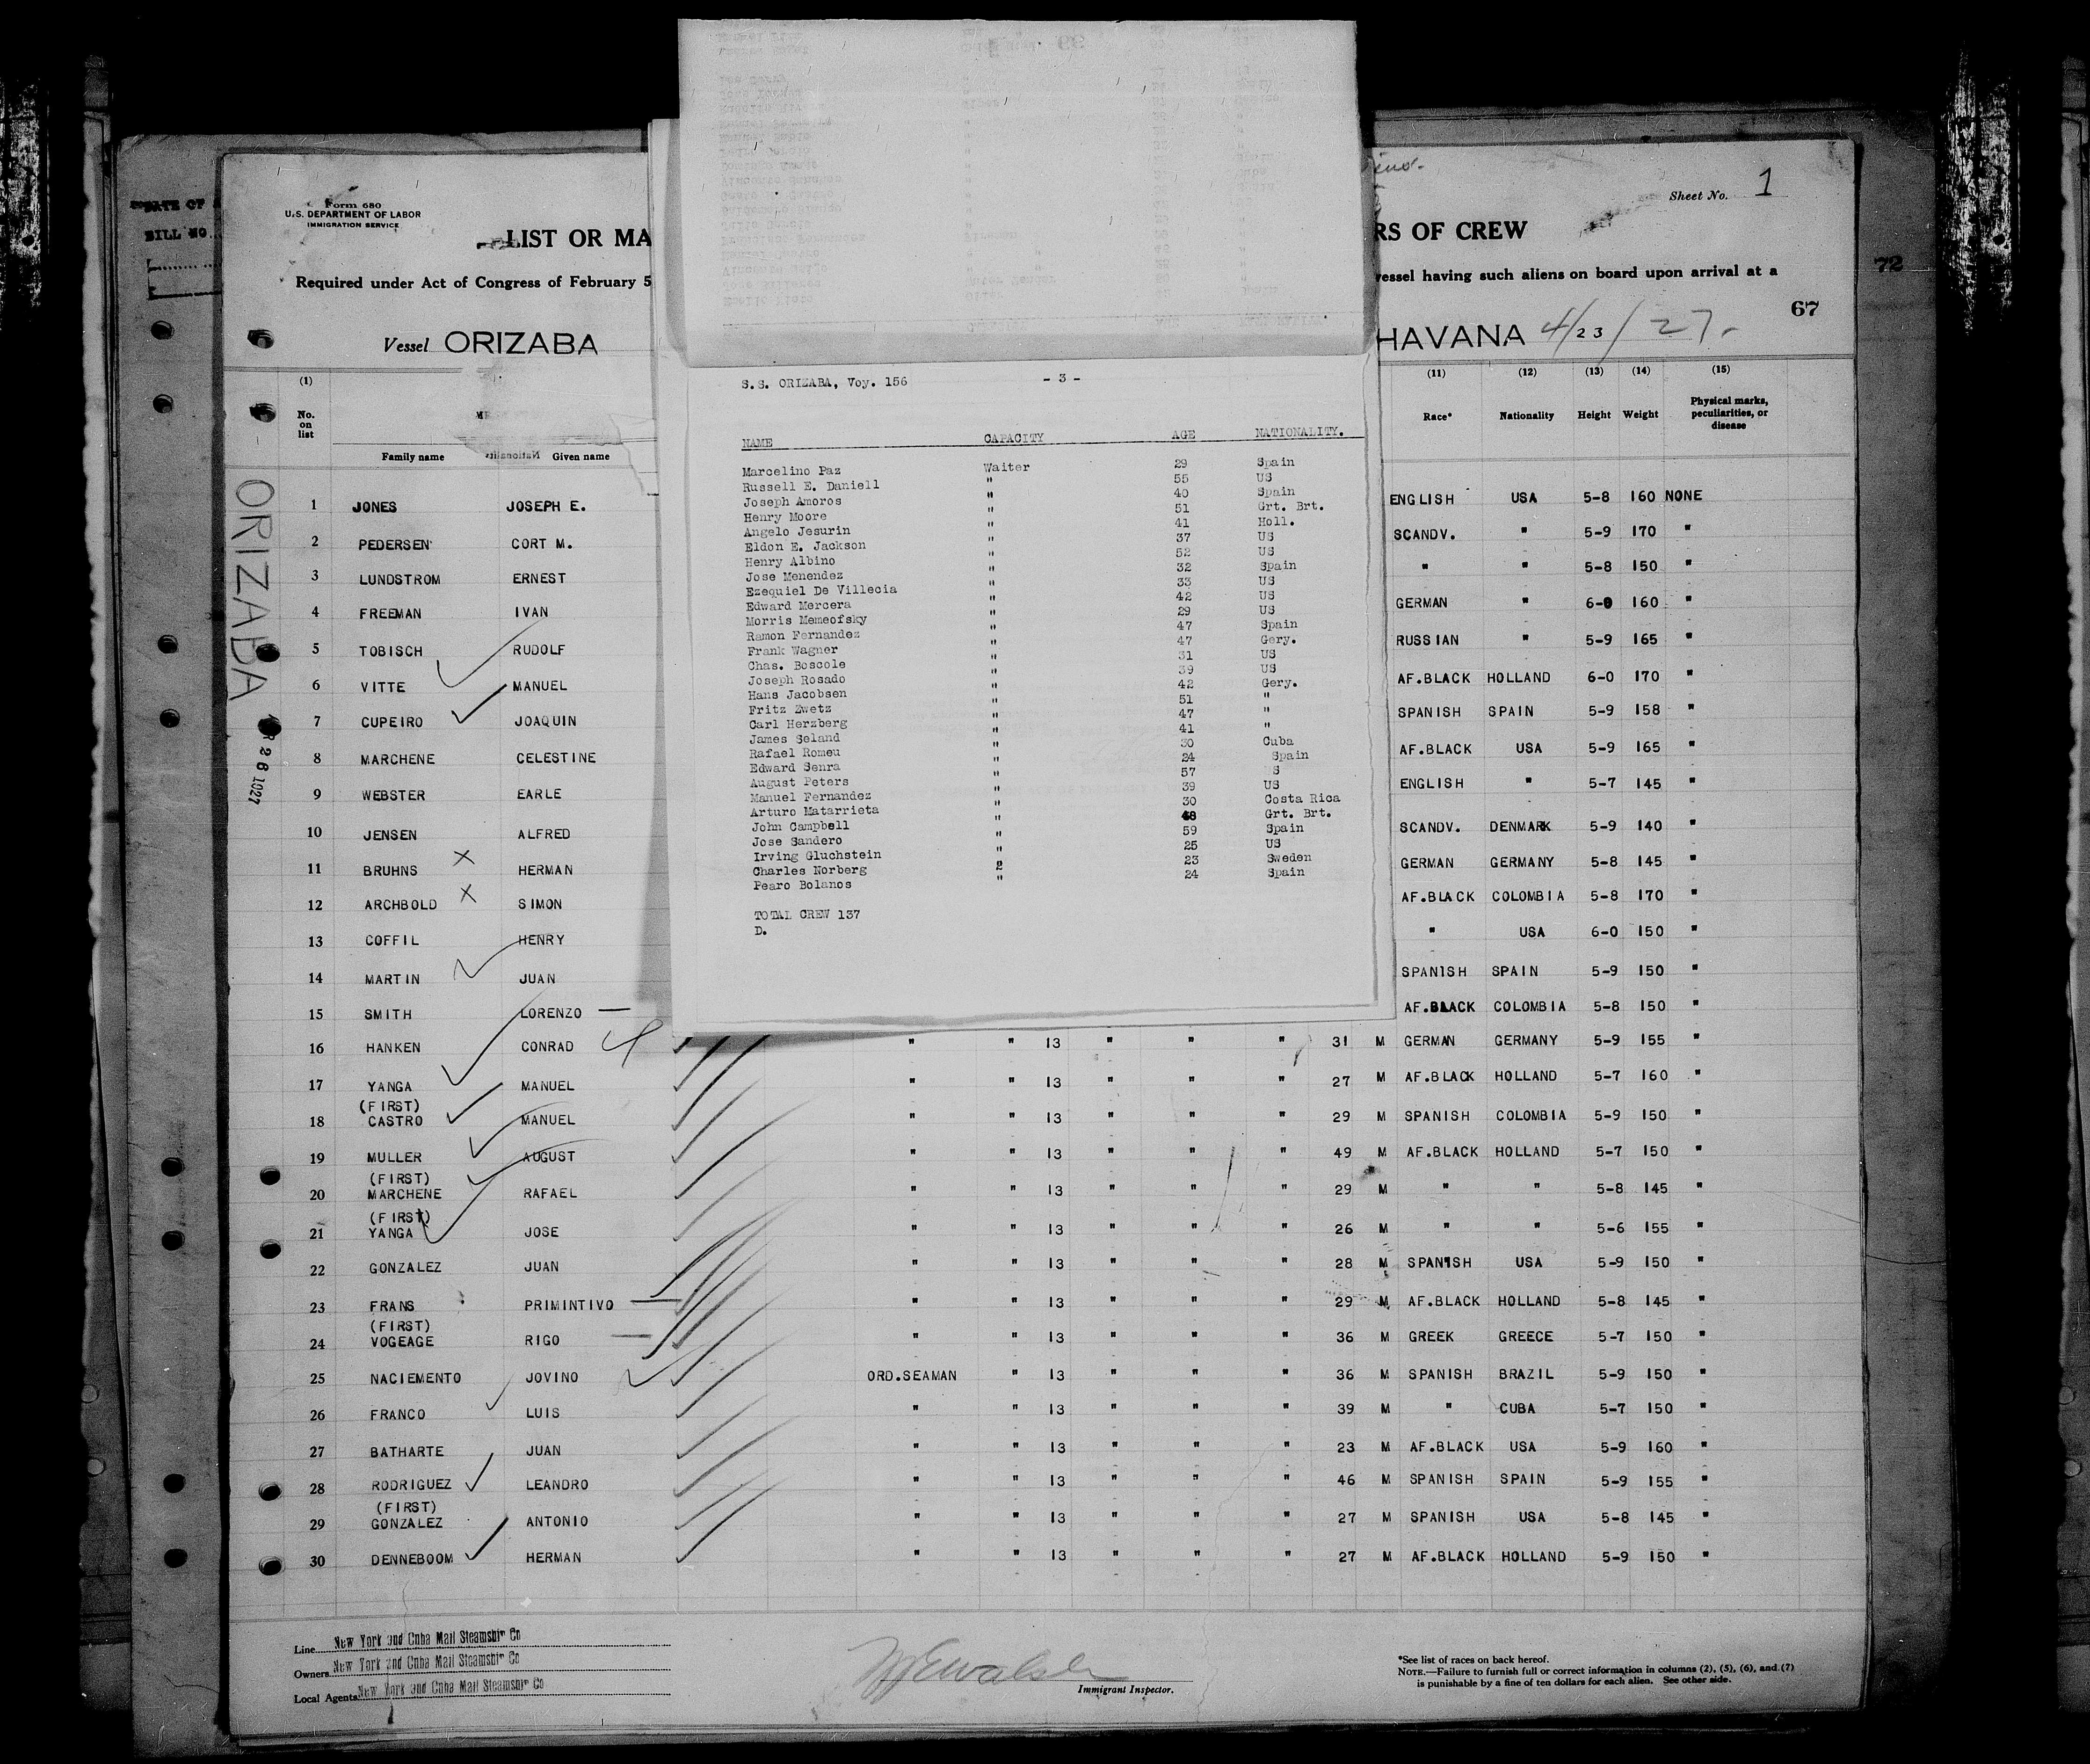 Form 680
U.S. DEPARTMENT OF LABOR
IMMIGRATION SERVICE
Sheet No. 1
LIST OR MA
RS OF CREW
Required under Act of Congress of February 5
vessel having such aliens on board upon arrival at a
72
67
Vessel ORIZABA
HAVANA 4/23/27.
ORIZABA
(1) (11) (12) (13) (14) (15)
No. on list
Family name Given name
Race* Nationality Height Weight Physical marks, peculiarities, or disease
S.S. ORIZABA, Voy. 156 - 3 -
NAME CAPACITY AGE NATIONALITY.
Marcelino Paz Waiter 29 Spain
Russell E. Daniell " 55 US
Joseph Amoros " 40 Spain
Henry Moore " 51 Grt. Brt.
Angelo Jesurin " 41 Holl.
Eldon E. Jackson " 37 US
Henry Albino " 52 US
Jose Menendez " 32 Spain
Ezequiel De Villecia " 33 US
Edward Mercera " 42 US
Morris Memeofsky " 29 US
Ramon Fernandez " 47 Spain
Frank Wagner " 47 Gery.
Chas. Boscole " 31 US
Joseph Rosado " 39 US
Hans Jacobsen " 42 Gery.
Fritz Zwetz " 51 "
Carl Herzberg " 47 "
James Seland " 41 "
Rafael Romeu " 30 Cuba
Edward Senra " 24 Spain
August Peters " 57 US
Manuel Fernandez " 39 US
Arturo Matarrieta " 30 Costa Rica
John Campbell " 48 Grt. Brt.
Jose Sandero " 59 Spain
Irving Gluchstein " 25 US
Charles Norberg " 23 Sweden
Pearo Bolanos " 24 Spain
TOTAL CREW 137
D.
1 JONES JOSEPH E. ENGLISH USA 5-8 160 NONE
2 PEDERSEN CORT M. SCANDV. " 5-9 170 "
3 LUNDSTROM ERNEST " " 5-8 150 "
4 FREEMAN IVAN GERMAN " 6-0 160 "
5 TOBISCH RUDOLF RUSSIAN " 5-9 165 "
6 VITTE MANUEL AF.BLACK HOLLAND 6-0 170 "
7 CUPEIRO JOAQUIN SPANISH SPAIN 5-9 158 "
8 MARCHENE CELESTINE AF.BLACK USA 5-9 165 "
9 WEBSTER EARLE ENGLISH " 5-7 145 "
10 JENSEN ALFRED SCANDV. DENMARK 5-9 140 "
11 BRUHNS HERMAN GERMAN GERMANY 5-8 145 "
12 ARCHBOLD SIMON AF.BLACK COLOMBIA 5-8 170 "
13 COFFIL HENRY " USA 6-0 150 "
14 MARTIN JUAN SPANISH SPAIN 5-9 150 "
15 SMITH LORENZO AF.BLACK COLOMBIA 5-8 150 "
16 HANKEN CONRAD " " 13 " " " 31 M GERMAN GERMANY 5-9 155 "
17 YANGA MANUEL " " 13 " " " 27 M AF.BLACK HOLLAND 5-7 160 "
(FIRST)
18 CASTRO MANUEL " " 13 " " " 29 M SPANISH COLOMBIA 5-9 150 "
19 MULLER AUGUST " " 13 " " " 49 M AF.BLACK HOLLAND 5-7 150 "
(FIRST)
20 MARCHENE RAFAEL " " 13 " " " 29 M " " 5-8 145 "
(FIRST)
21 YANGA JOSE " " 13 " " " 26 M " " 5-6 155 "
22 GONZALEZ JUAN " " 13 " " " 28 M SPANISH USA 5-9 150 "
23 FRANS PRIMINTIVO " " 13 " " " 29 M AF.BLACK HOLLAND 5-8 145 "
(FIRST)
24 VOGEAGE RIGO " " 13 " " " 36 M GREEK GREECE 5-7 150 "
25 NACIEMENTO JOVINO ORD.SEAMAN " 13 " " " 36 M SPANISH BRAZIL 5-9 150 "
26 FRANCO LUIS " " 13 " " " 39 M " CUBA 5-7 150 "
27 BATHARTE JUAN " " 13 " " " 23 M AF.BLACK USA 5-9 160 "
28 RODRIGUEZ LEANDRO " " 13 " " " 46 M SPANISH SPAIN 5-9 155 "
(FIRST)
29 GONZALEZ ANTONIO " " 13 " " " 27 M SPANISH USA 5-8 145 "
30 DENNEBOOM HERMAN " " 13 " " " 27 M AF.BLACK HOLLAND 5-9 150 "
Line New York and Cuba Mail Steamship Co
Owners New York and Cuba Mail Steamship Co
Local Agents New York and Cuba Mail Steamship Co
Immigrant Inspector.
*See list of races on back hereof.
NOTE.—Failure to furnish full or correct information in columns (2), (5), (6), and (7)
is punishable by a fine of ten dollars for each alien. See other side.